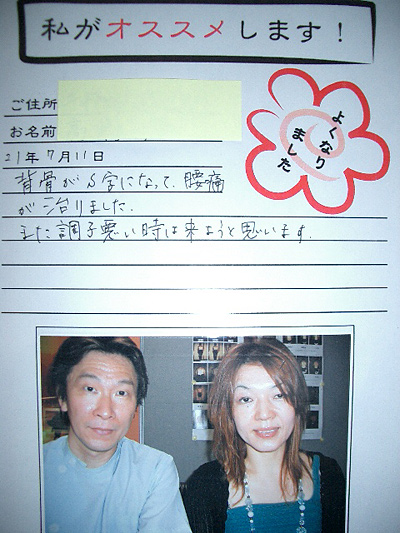 私がオススメします！
ご住所
お名前
よくなり
ました
21年7月11日
背骨がS字になって、腰痛
が治りました。
また調子悪い時は来ようと思います。